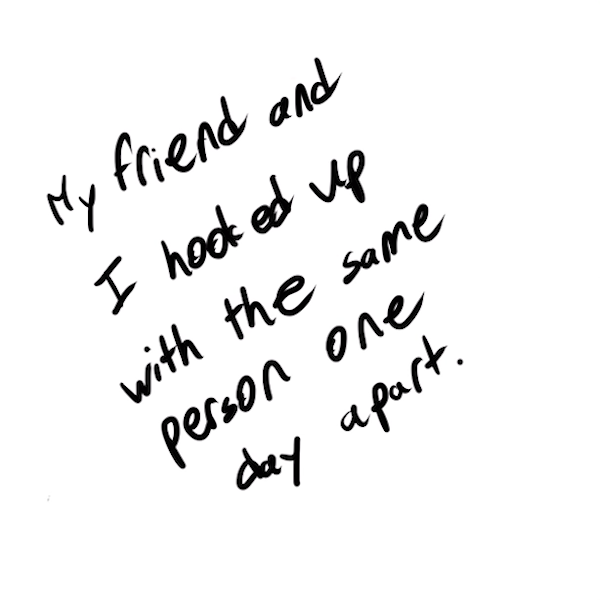 My friend and
I hooked up
with the same
person one
day apart.